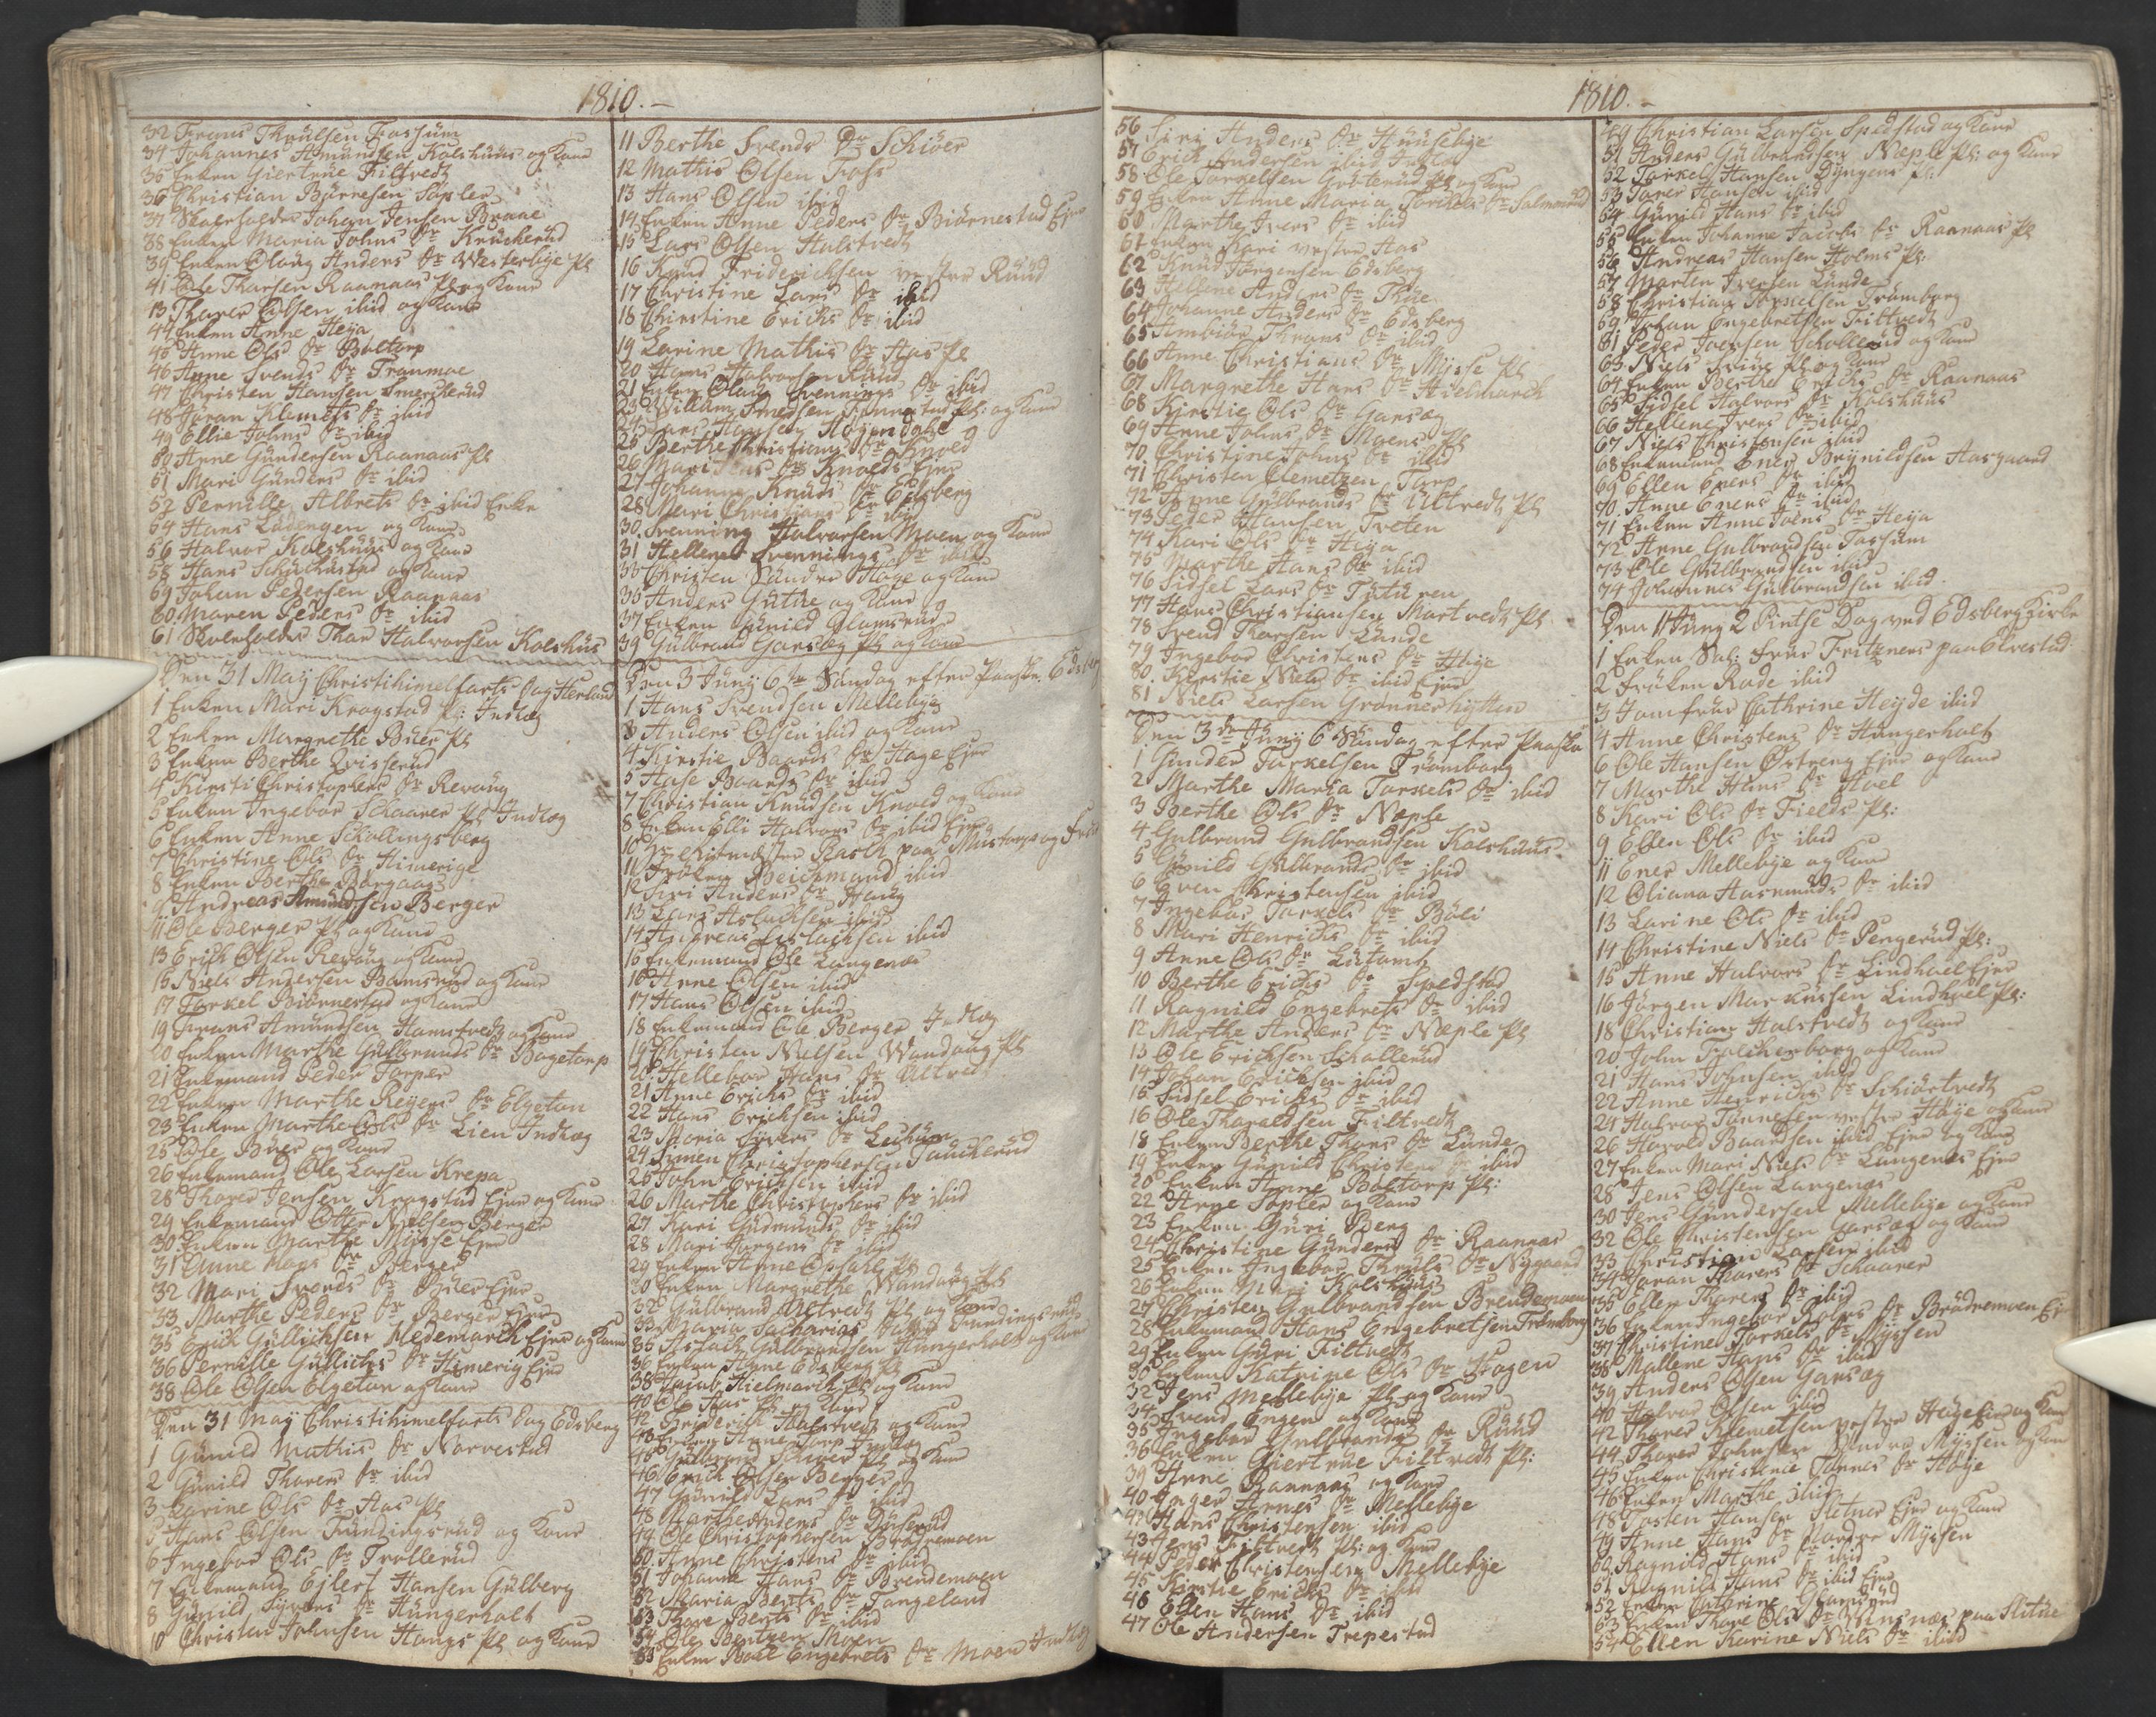 1810.
32 Frans Thrulsen Fossum
34 Johannes Amundsen Kolshuus og Kone
35 Enken Giertrue Filtvedt
36 Christian Børresen Søpler
37 Skoeholder Johan Jensen Braae
38 Enken Maria Johns Dr Kruckerud
39 Enken Olaug Anders Dr Westerbye Pl
41 Ole Tharsen Raanaas Pl og Kone
13 Tharer Olsen ibid og Kone
44 Enken Anne Heja
45 Anne Ols Dr Boltorp
46 Anne Svends Dr Tranmoe
47 Christen Hansen Smerckerud
48 Jøran Klemets Dr ibid
49 Ellie Johns Dr ibid
50 Anne Gundersen Raanaas Pl
51 Mari Gunders Dr ibid
52 Pernille Albrets Dr ibid Enke
54 Hans Ladengen og Kone
56 Halvor Kolshuus og Kone
58 Hans Schuckustad og Kone
59 Johan Pedersen Raanaas
60 Maren Peders Dr ibid
61 Skoleholder Thor Halvorsen Kolshus
Den 31 Maÿ Christihimelfarts Dag Herland
1 Enken Mari Kragstad Pl: Indlæg
2 Enken Margrethe Buer Pl
3 Enken Berthe Qvisserud
4 Kirsti Christophers Dr Revaug
5 Enken Ingebor Schaarer Pl Indlæg
6 Enken Anne Schollingsberg
7 Christine Ols Dr Himerige
8 Enken Berthe Borgaas
9 Andreas Amundsen Berger
11 Ole Berger Pl og Kone
13 Erich Olsen Revaug og Kone
15 Niels Andersen Bamsrud og Kone
17 Torkel Biørnestad og Kone
19 Frans Amundsen Hamstvedt og Kone
20 Enken Marthe Gulbrands Dr Bogetorp
21 Enkemand Peder Torper
22 Enken Marthe Reyers Dr Elgetun
23 Enken Marthe Ols Dr Lien Indlæg
25 Ole Buer og Kone
26 Enkemand Ole Larsen Krepa
28 Thorer Jensen Kragstad Ejer og Kone
29 Enkemand Otter Nielsen Berger
30 Enken Marthe Mysse Ejer
31 Anne Hans Dr Berger
32 Mari Svends Dr Buer Ejer
33 Marthe Peders Dr Berger Ejer
35 Erich Gullichsen Hedemarch Ejer og Kone
36 Pernille Gullichs Dr Himerig Ejer
38 Ole Olsen Elgetun og Kone
Den 31 Maÿ Christihimelfarts Dag Edsberg
1 Gunild Mathis Dr Narvestad
2 Gunild Thorers Dr ibid
3 Karine Ols Dr Aas Pl
5 Hans Olsen Tundingsrud og Kone
6 Ingebor Ols Dr Trollerud
7 Enkemand Ejlert Hansen Gulberg
8 Gunild Syvers Dr Hungerholt
10 Christen Johnsen Haugs Pl og Kone
11 Berthe Svends Dr Schiøer
12 Mathis Olsen Foss
13 Hans Olsen ibid
14 Enken Anne Peders Dr Biørnestad Ejer
15 Lars Olsen Halstvedt
16 Knud Friderichsen vestre Ruud
17 Christine Lars Dr ibid
18 Christine Erichs Dr ibid
19 Larine Mathis Dr Aas Pl
20 Hans Halvorsen Ruud
21 Enken Olaug Svennings Dr ibid
25 Berthe Christians Dr Knold
26 Mari Jens Dr Knolds Ejer
27 Johanne Knuds Dr Edsberg
28 Mari Christians Dr ibid
30 Svenning Halvorsen Moen og Kone
31 Hellene Svennings Dr ibid
33 Christen Søndre Høye og Kone
35 Anders Guthe og Kone
37 Enken Gunild Glamsrud
39 Gulbrand Garseg Pl og Kone
Den 3 Juny 6te Søndag efter Paaske Edsberg
1 Hans Svendsen Mellebye
3 Anders Olsen ibid og Kone
4 Kirstie Baards Dr Hage Ejer
5 Aase Baards Dr ibid
7 Christian Knudsen Knold og Kone
8 Enken Elli Halvors Dr ibid Ejer
11 Frøken Beichmand ibid
12 Siri Anders Dr Haug
13 Lars Aslachsen ibid
14 Andreas Aslachsen ibid
15 Enkemand Ole Langenæs
16 Anne Olsen ibid
17 Hans Olsen ibid
18 Enkemand Ole Berger Indlæg
19 Christen Nielsen Wandaug Pl
20 Hellebor Hans Dr Ultvedt
21 Anne Erichs Dr ibid
22 Hans Erichsen ibid
23 Maria Syvers Dr Lechum
24 Simen Christophersen Gauckerud
25 John Erichsen ibid
26 Marthe Christophers Dr ibid
27 Kari Gudmunds Dr ibid
28 Mari Jørgens Dr ibid
29 Enken Anne Opsahl Pl
30 Enken Margrethe Wandaug Pl
32 Gulbrand Ultvedt Pl og Kone
33 Maria Sacharias Datter Tundingsrud
35 Aslach Gulbrandsen Hungerholt og Kone
36 Enken Anne Edsberg Pl
38 Jacob Hielmarck Pl og Kone
40 Ole Aas Pl og Kone
42 Friderich Halstvedt og Kone
43 Enken Anne Torp Indlæg
45 Gulbrand Schiøer Pl og Kone
46 Erich Olsen Berger
47 Gunild Lars Dr ibid
48 Marthe Anders Dr Duserud
49 Ole Christophersen Brødremoen
50 Anne Christens Dr ibid
51 Johanne Hans Dr Brendemoen
52 Maria Bents Dr Tangeland
53 Thore Bents Dr ibid
54 Ole Bentzen Moen
55 Enken Boel Engebrets Dr Moen Indlæg
1810.
56 Siri Anders Dr Huusebye
57 Erich Andersen ibid
58 Ole Torkelsen Grøterud Pl og Kone
59 Enken Anne Maria Torckels Dr Salmonrud
60 Marthe Ivers Dr ibid
61 Enken Kari vestre Aas
62 Knud Jørgensen Edsberg
63 Hellene Anders Dr Thue
64 Johanne Anders Dr Edsberg
65 Jimbiør Thrans Dr ibid
66 Anne Christians Dr Mysse Pl
67 Margrethe Hans Dr Hielmarck
68 Kirstie Ols Dr Garseg
69 Anne Johns Dr Moens Pl
70 Christine Johns Dr ibid
71 Christen Clemetzen Torp
72 Anne Gulbrands Dr Ultvedt Pl
73 Peder Hansen Tveten
74 Kari Ols Dr Heya
75 Marthe Hans Dr ibid
76 Sidsel Lars Dr Tuturen
77 Hans Christiansen Martvedt Pl
78 Svend Thorsen Lunde
79 Ingebor Christens Dr Høye
80 Kirstie Niels Dr ibid Ejer
81 Niels Larsen Grønnerhytten
Den 3de Juny 6 Søndag efter Paaske
1 Gunder Torkelsen Trømborg
2 Marthe Maria Torkels Dr ibid
3 Berthe Ols Dr Næple
4 Gulbrand Gulbrandsen Kolshuus
5 Gunild Gulbrands Dr ibid
6 Even Christensen ibid
7 Ingebor Torkels Dr Bøli
8 Mari Henrichs Dr ibid
9 Anne Ols Dr Lutomt
10 Berthe Erichs Dr Spedstad
11 Ragnild Engebrets Dr ibid
12 Marthe Anders Dr Næple Pl
13 Ole Erichsen Schallerud
14 Johan Erichsen ibid
15 Sidsel Erichs Dr ibid
16 Ole Tharaldsen Filtvedt
18 Enken Berthe Thors Dr Lunde
19 Enken Gunild Christens Dr ibid
20 Enken Anne Boltorp Pl:
22 Arne Søpler og Kone
23 Enken Guri Berg
24 Christine Gunders Dr Raanaas
25 Enken Ingebor Thruls Dr Nygaard
26 Enken Mari Kolshuus
27 Christen Gulbrandsen Brendemoen
28 Enkemand Hans Engebretsen Trømborg
29 Enken Guri Filtvedt
30 Enken Katrine Ols Dr Hagen
32 Jens Mellebye Pl og Kone
34 Svend Engen og Kone
35 Ingebor Gulbrands Dr Ruud
36 Enken Giertrue Filtvedt Pl:
39 Arne Raanaas og Kone
40 Inger Arnes Dr Mellebye
41 Hans Christensen ibid
43 Jens Filtvedt Pl: og Kone
44 Peder Christensen Mellebye
45 Kirstie Erichs Dr ibid
46 Ellen Hans Dr ibid
47 Ole Andersen Trepestad
49 Christian Larsen Spedstad og Kone
51 Anders Gulbrandsen Næple Pl: og Kone
52 Torkel Hansen Dyngens Pl:
53 Tarer Hansen ibid
54 Gunild Hans Dr ibid
55 Enken Johanne Jacobs Dr Raanaas Pl
56 Andreas Hansen Holms Pl:
57 Morten Iversen Lunde
58 Christian Torkelsen Trømborg
59 Johan Engebretsen Filtvedt
61 Peder Joensen Schallerud og Kone
63 Niels Friue Pl og Kone
64 Enken Berthe Erichs Dr Raanaas
65 Sidsel Halvors Dr Kolshuus
66 Hellene Ivers Dr ibid
67 Niels Christensen ibid
68 Enkemand Ener Brynildsen Aasgaard
69 Ellen Eners Dr ibid
70 Anne Eners Dr ibid
71 Enken Anne Joens Dr Heija
72 Arne Gulbrandsen Fossum
73 Ole Gulbrandsen ibid
74 Johannes Gulbrandsen ibid
Den 11 Juny 2 Pintse Dag ved Edsberg Kirke
1 Enken Sal: Frue Fritzners paa Elvestad
2 Frøken Rode ibid
3 Jomfrue Cathrine Heyde ibid
4 Anne Christens Dr Hungerholt
6 Ole Hansen Østreng Ejer og Kone
7 Marthe Hans Dr Hoel
8 Kari Ols Dr Fields Pl:
9 Ellen Ols Dr ibid
11 Ener Mellebye og Kone
12 Oliana Aasmunds Dr ibid
13 Larine Ols Dr ibid
14 Christine Niels Dr Pengerud Pl:
15 Anne Halvors Dr Lindhoel Ejer
16 Jørgen Markussen Lindhoel Pl:
18 Christian Halstvedt og Kone
20 John Trolcherborg og Kone
21 Hans Johnsen ibid
22 Anne Henrichs Dr Schiørtvedt
24 Halvor Tønnesen vestre Høye og Kone
26 Harald Baardsen ibid Ejer og Kone
27 Enken Mari Niels Dr Langenæs Ejer
28 Jens Olsen Langenæs
30 Jens Gundersen Mellebye og Kone
32 Ole Christensen Garseg og Kone
33 Christian Larsen ibid
34 Jøran Thorers Dr Schaarer
35 Ellen Thorers Dr ibid
36 Enken Ingebor Holms Dr Brødremoen Ejer
37 Christine Torkels Dr Myssen
38 Mallene Hans Dr ibid
39 Anders Olsen Garseg
40 Halvor Olsen ibid
42 Thorer Klemetsen vestre Høye Ejer og Kone
44 Thorer Johnsen Søndre Myssen og Kone
45 Enken Christenie Tønnes Dr Høye
46 Enken Marthe ibid
48 Tosten Hansen Sletner Ejer og Kone
49 Anne Hans Dr Nordre Myssen
50 Ragnild Hans Dr ibid
51 Ragnild Hans Dr ibid Ejer
52 Enken Cathrine Glamsrud
54 Ellen Karine Niels Dr ibid